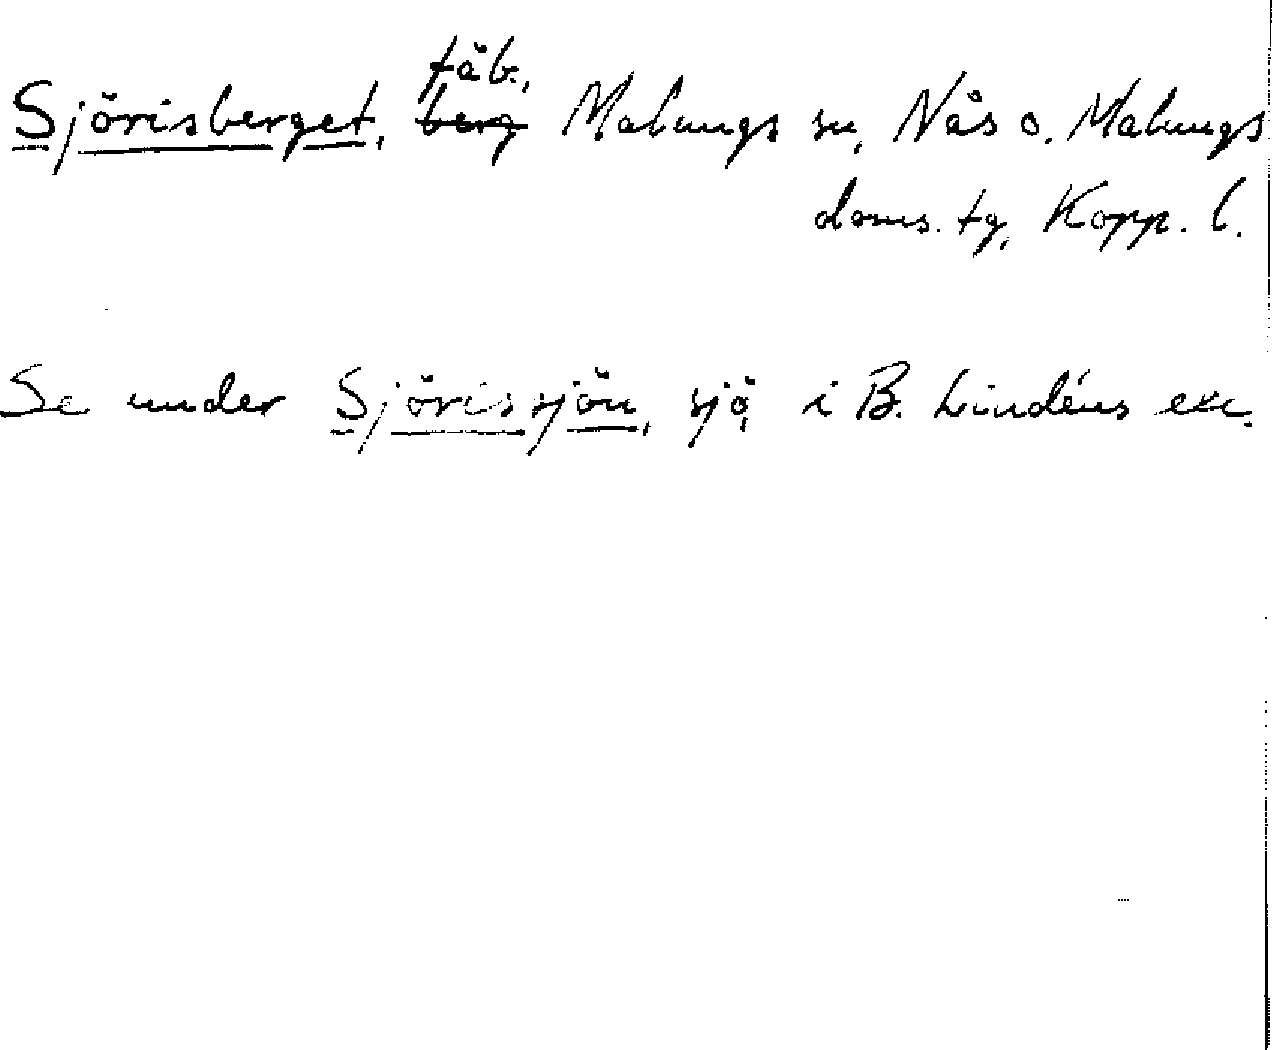 Sjörisberget, fäb., Malungs sn, Nås o. Malungs
doms. tg, Kopp. l.
Se under Sjörissjön, sjö, i B. Lindéns exc.